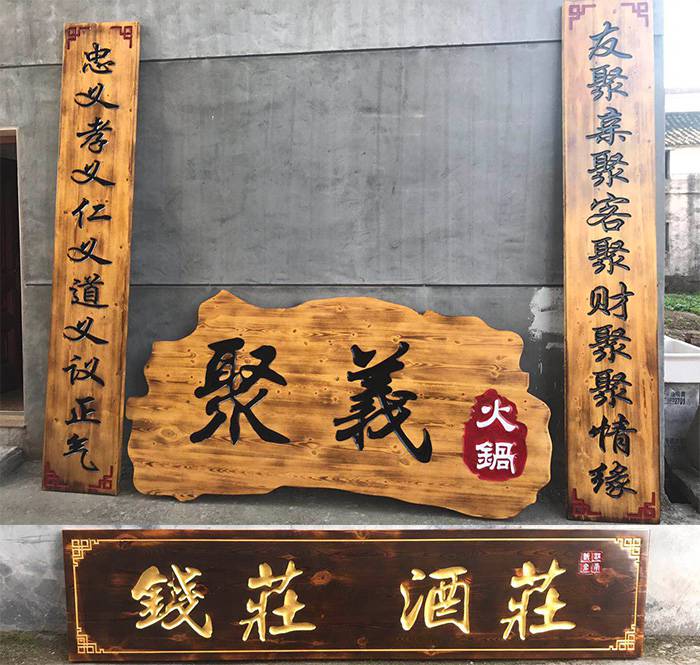 忠义孝义仁义道义议正气
友聚亲聚客聚财聚聚情缘
聚義
火鍋
錢莊 酒莊